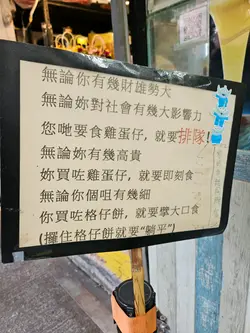 無論你有幾財雄勢大
無論妳對社會有幾大影響力
您哋要食雞蛋仔，就要排隊！
無論妳有幾高貴
妳買咗雞蛋仔，就要即刻食
無論你個咀有幾細
你買咗格仔餅，就要擘大口食
(攞住格仔餅就要“躺平”)